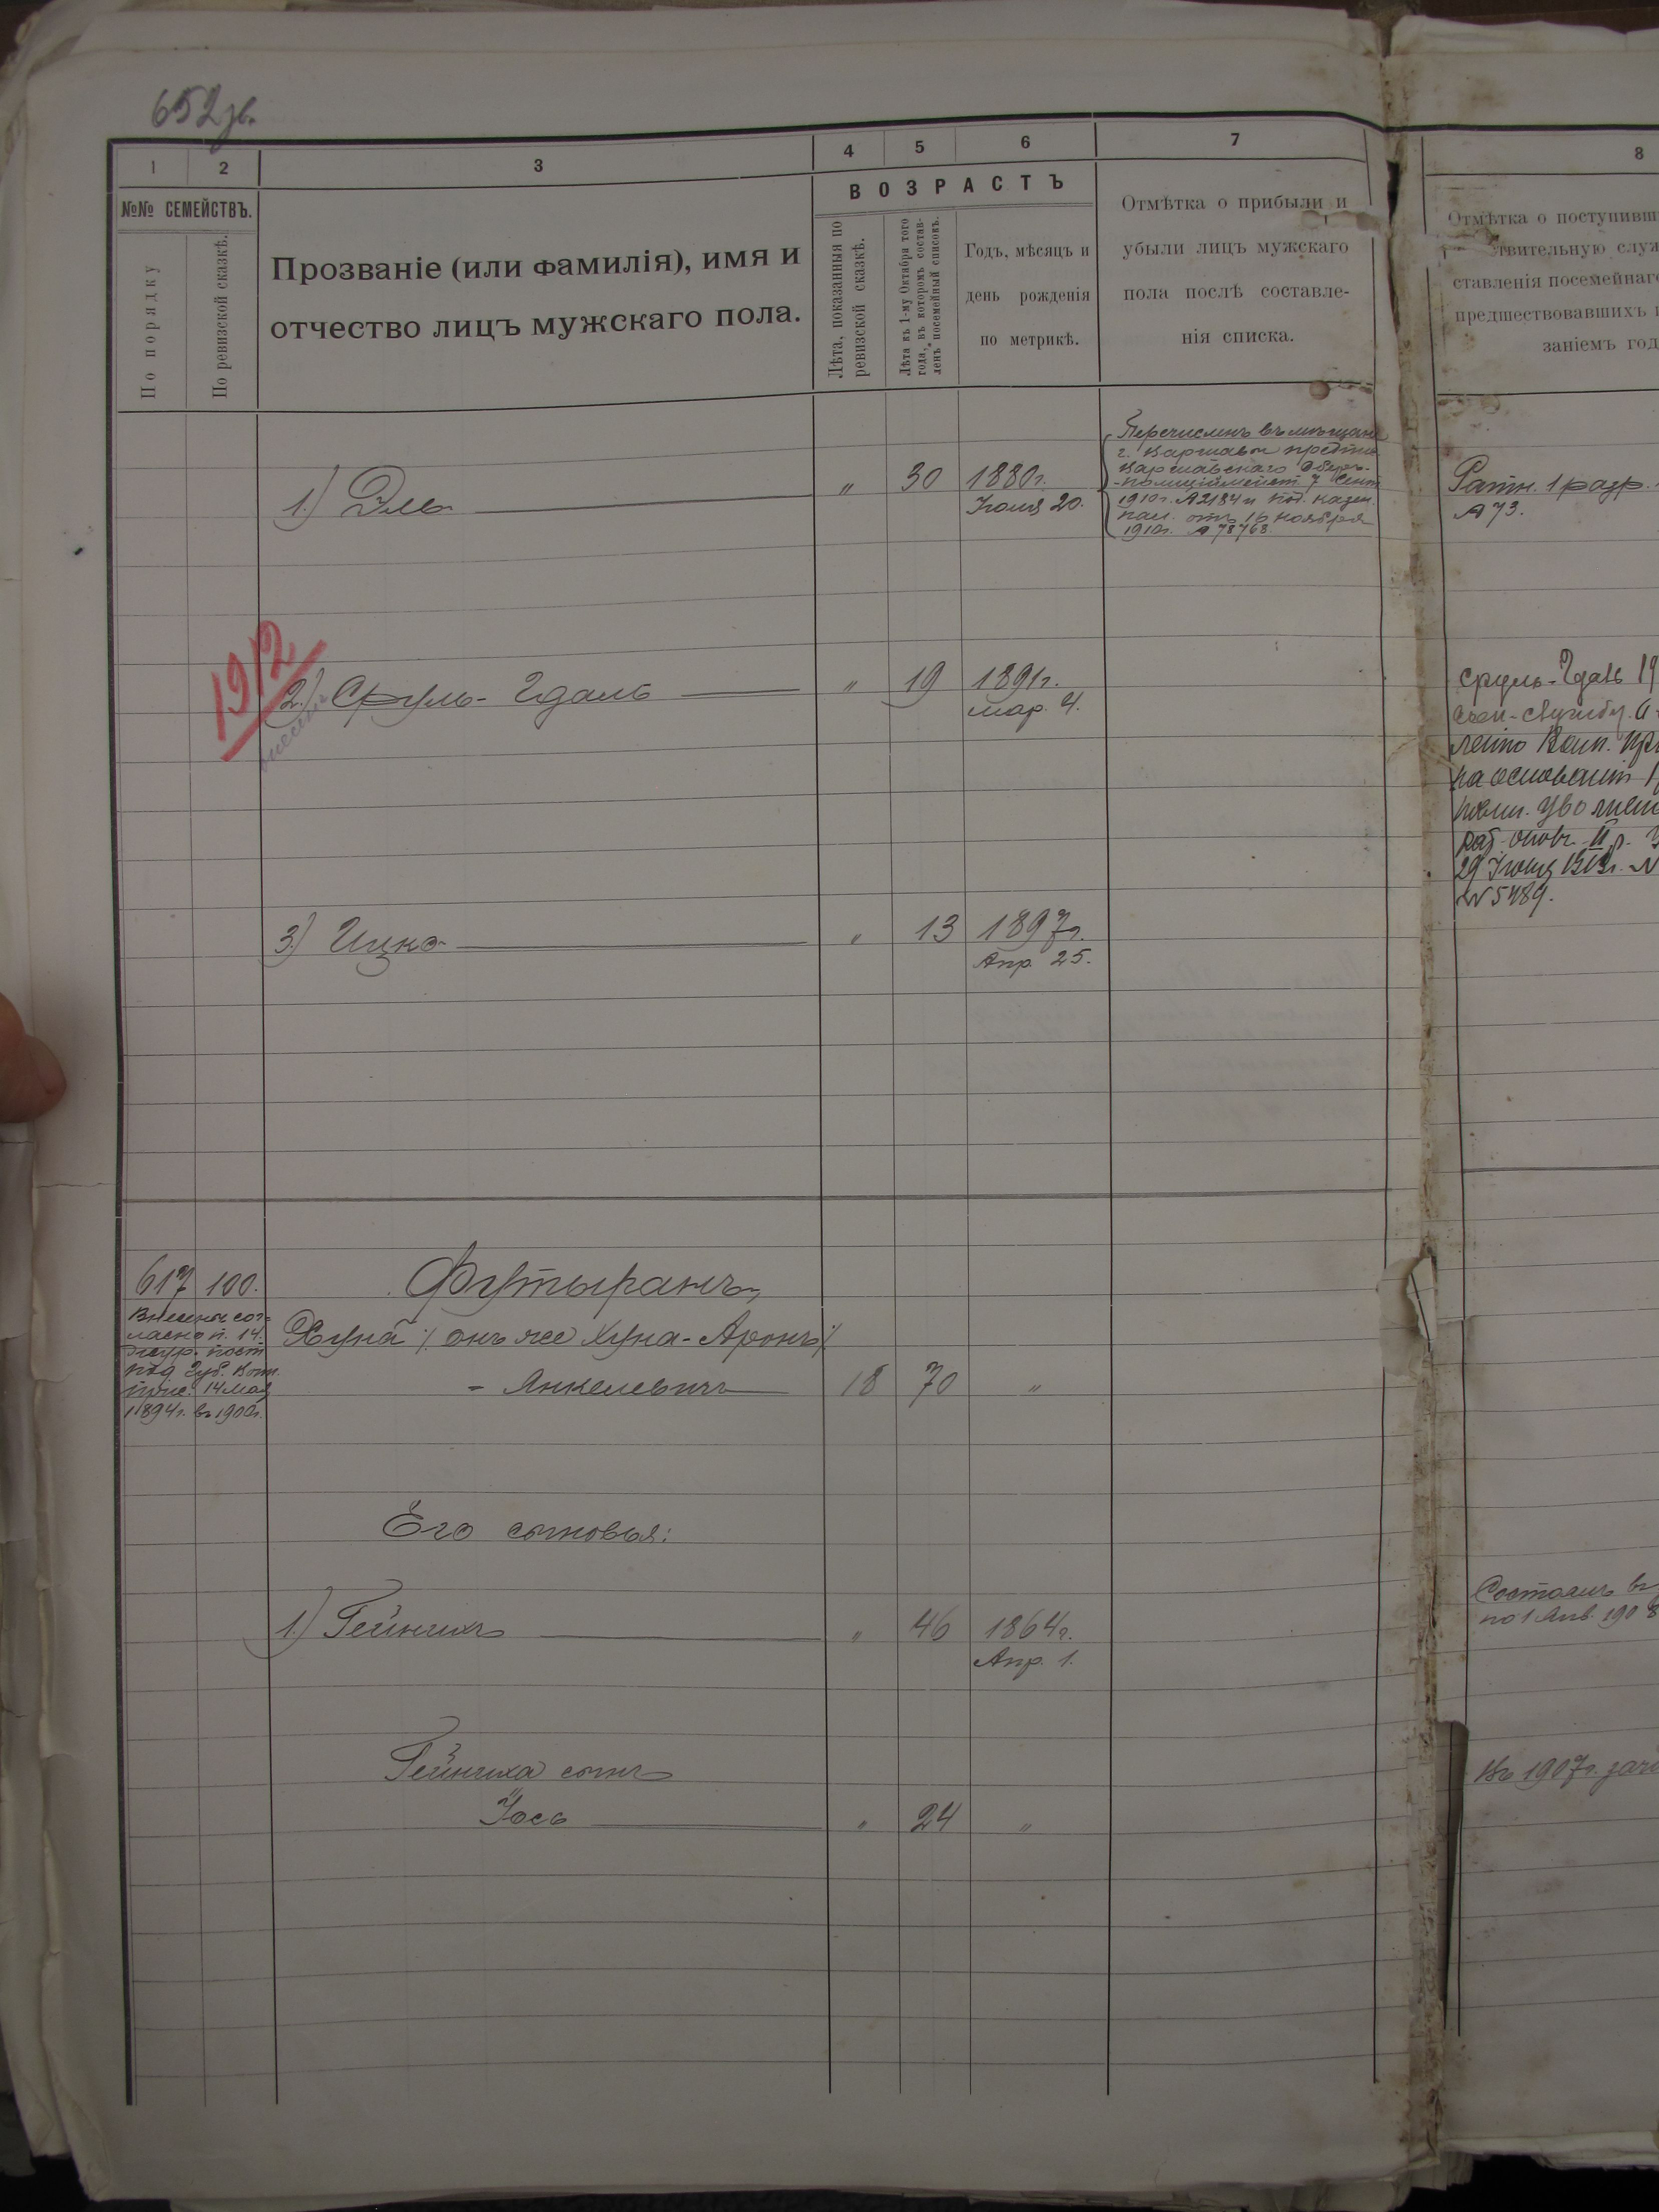 652 зв.
1 2 3 4 5 6 7 8
№№ СЕМЕЙСТВЪ.
По порядку
По ревизской сказкѣ.
Прозваніе (или фамилія), имя и
отчество лицъ мужскаго пола.
ВОЗРАСТЪ
Лѣта, показанныя по
ревизской сказкѣ.
Лѣта къ 1-му Октября того
года, въ которомъ состав-
ленъ посемейный списокъ.
Годъ, мѣсяцъ и
день рожденія
по метрикѣ.
Отмѣтка о прибыли и
убыли лицъ мужскаго
пола послѣ составле-
нія списка.
Отмѣтка о поступивш
ствительную служ
ставленія посемейнаго
предшествовавшихъ
заніемъ год
1.) Эль " 30 1880г.
Іюля 20.
Перечисленъ въ мѣщане
г. Варшавы
Варшавскаго Оберъ-
-полиціймейст. 7 Сент.
1910г. № 2184 и пст. казен.
пал. отъ 16 ноября
1910г. № 78768.
Ратн. 1 разр.
№ 73.
1912
2.) Сруль-Гдаль " 19 1891г.
мар. 4.
Сруль-Гдаль 19
на основаніи
рат. опол. II р.
29 Іюня 1913г. №
№ 5489.
3.) Ицко " 13 1897г.
Апр. 25.
617 100. Футыранъ,
Внесены сог-
ласно п. 14
жур. пост.
под Губ. Воин.
прис. 14 мая
1894г. въ 1900г.
Хуна /онъ же Хуна-Аронъ/
- Янкелевичъ 18 70 "
Его сыновья:
1.) Гейнихъ " 46 1864г.
Апр. 1.
Состоялъ въ
по 1 Янв. 1908
Гейниха сынъ
Іось " 24 "
Въ 1907г. зачи